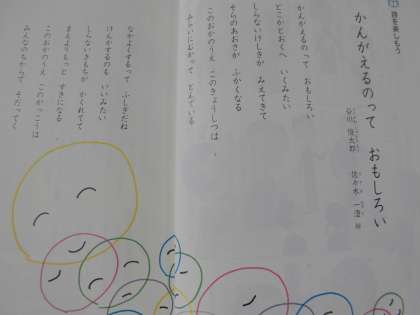 詩を楽しもう
かんがえるのって おもしろい
谷川 俊太郎
佐々木 一澄 絵
かんがえるのって おもしろい
どこかとおくへ いくみたい
しらないけしきが みえてきて
そらのあおさが ふかくなる
このおかのうえ このきょうしつは
みらいにむかって とんでいる
なかよくするって ふしぎだね
けんかするのも いいみたい
しらないきもちが かくれてて
まえよりもっと すきになる
このおかのうえ このがっこうは
みんなのちからで そだってく